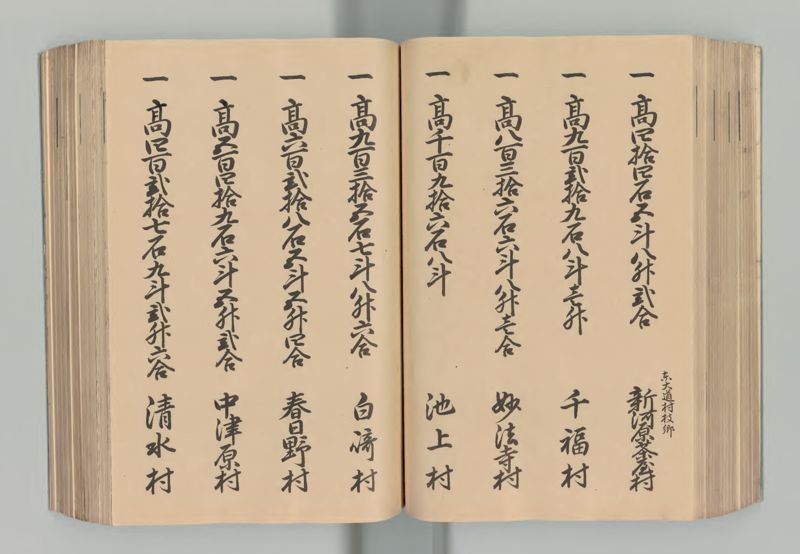 一 高四拾四石五斗八升弐合
東大道村枝郷
新河原茶屋村
一 高九百弐拾九石八斗壱升 千福村
一 高八百三拾六石六斗八升壱合 妙法寺村
一 高千百九拾六石八斗 池上村
一 高九百三拾五石七斗八升六合 白﨑村
一 高六百弐拾八石五斗五升四合 春日野村
一 高五百四拾九石六斗五升弐合 中津原村
一 高四百弐拾七石九斗弐升六合 清水村